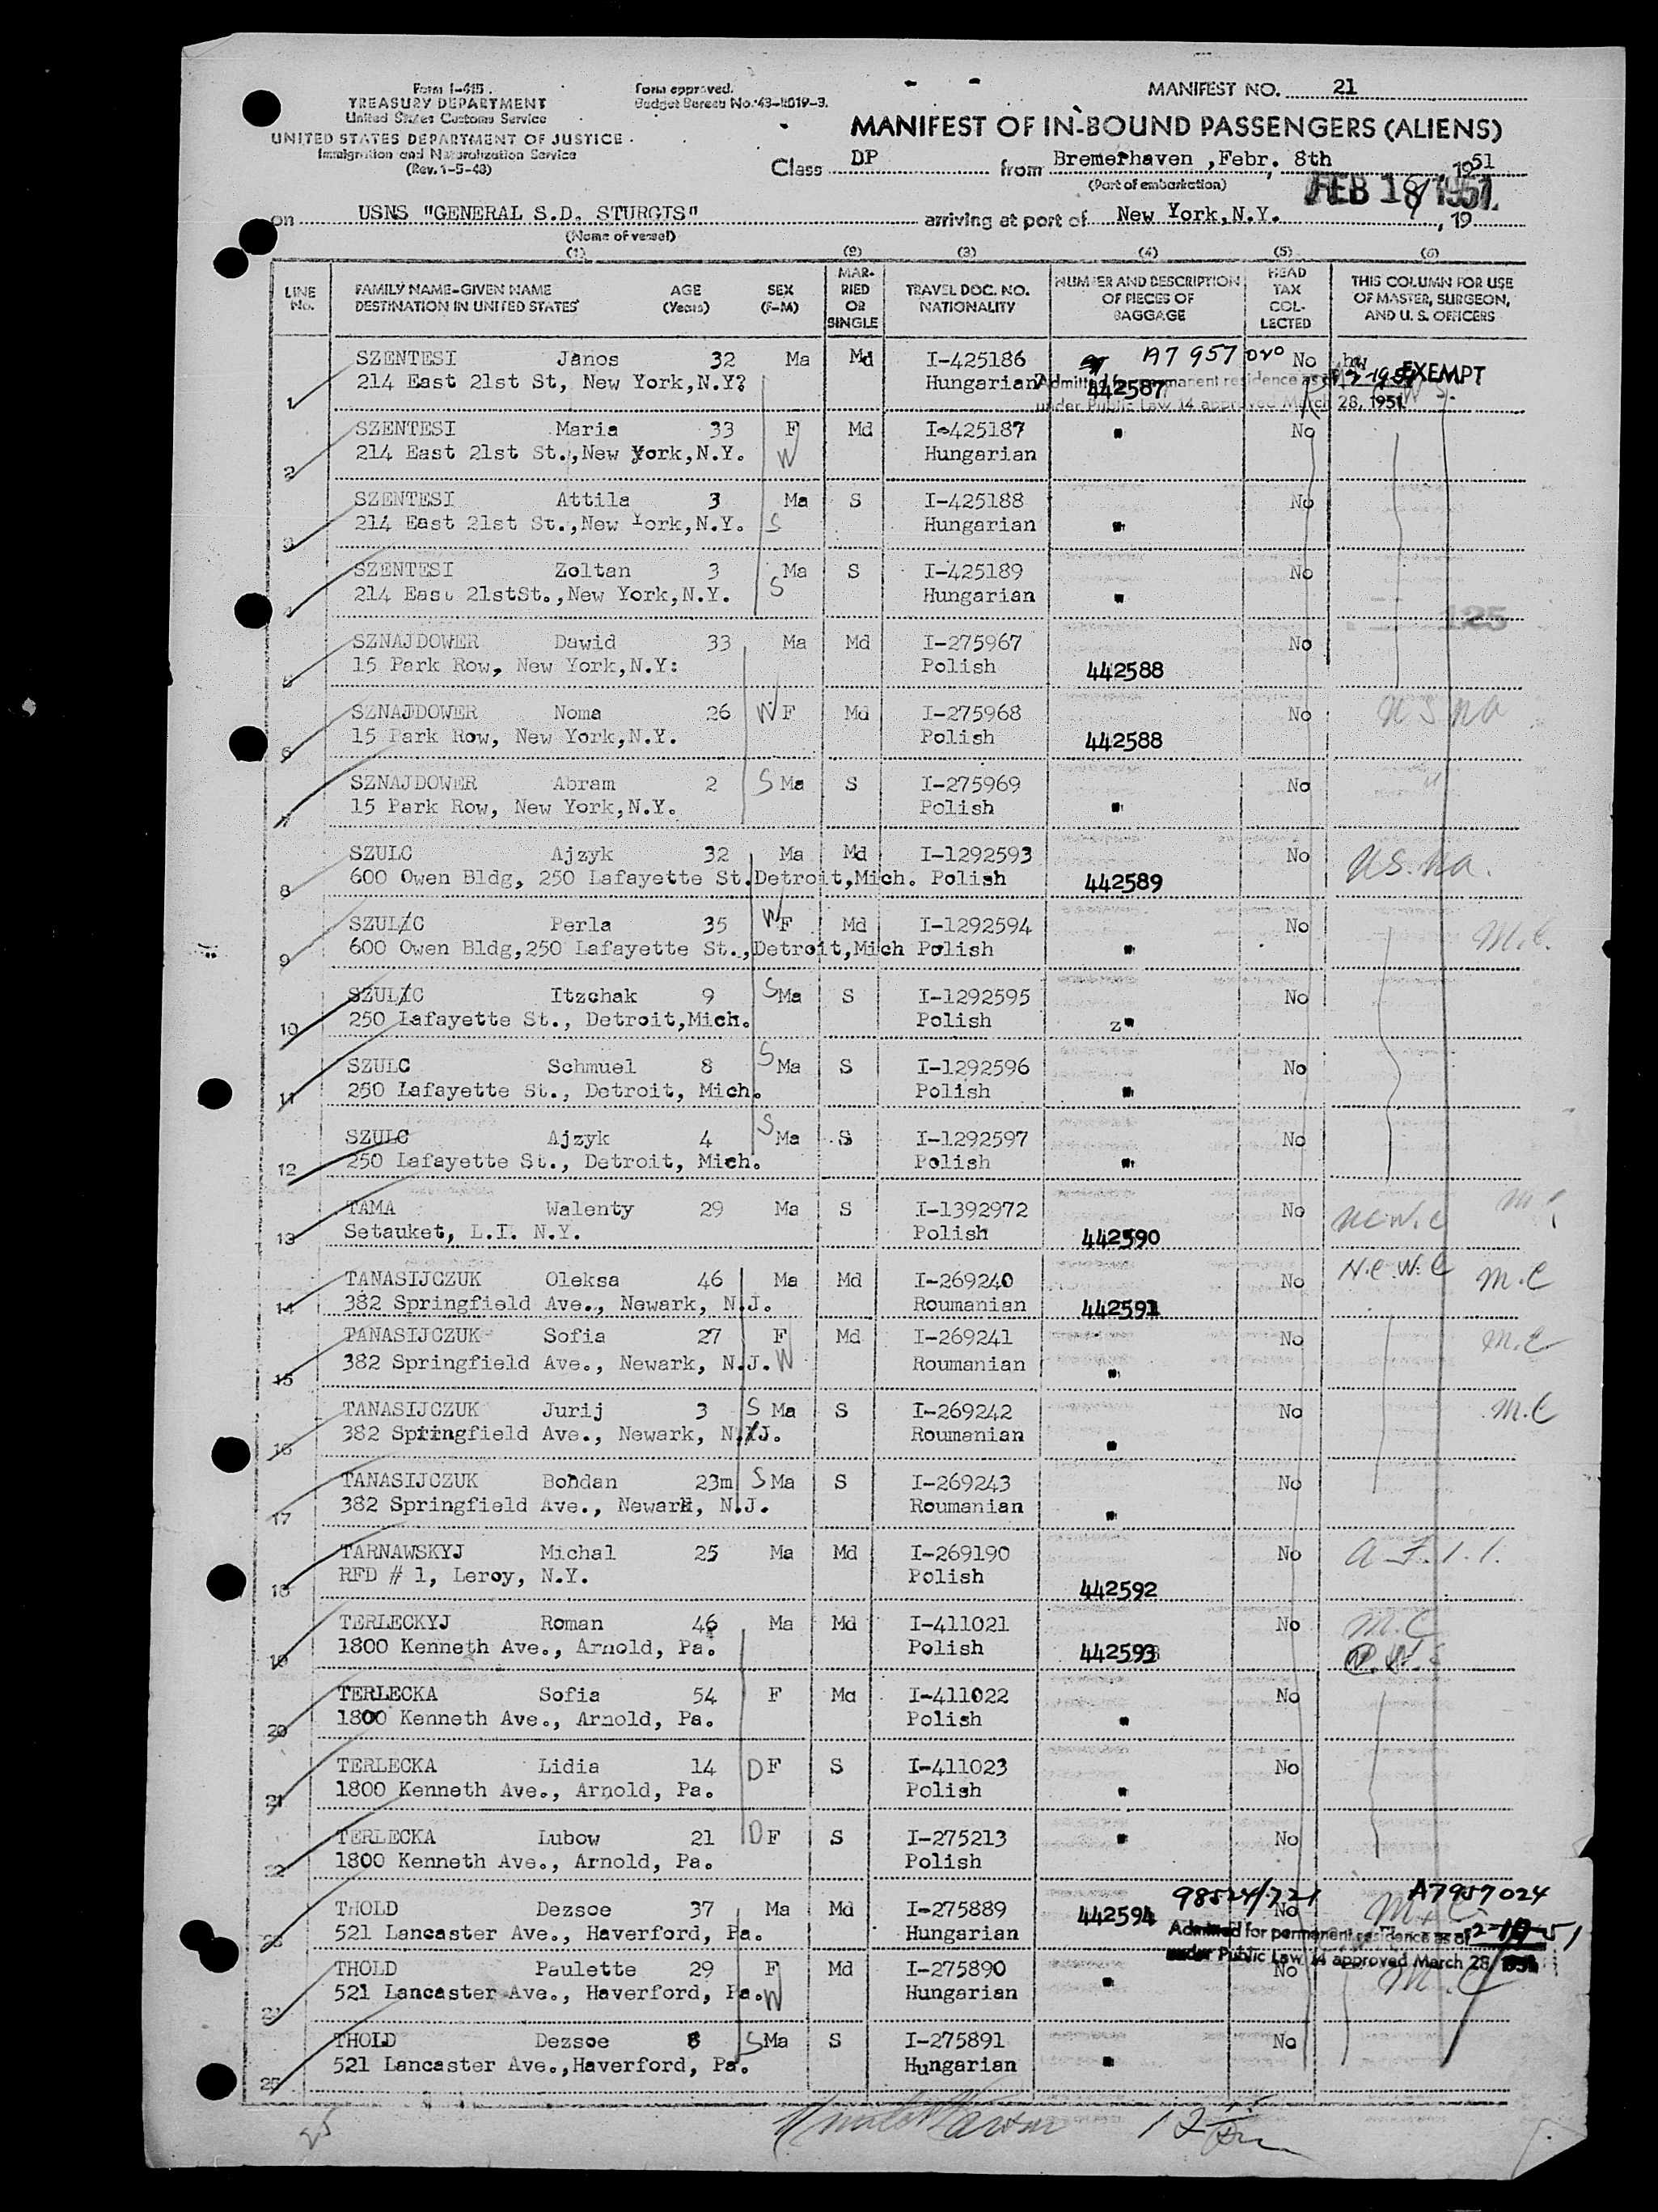 Form I-415
TREASURY DEPARTMENT
United States Customs Service
UNITED STATES DEPARTMENT OF JUSTICE
Immigration and Naturalization Service
(Rev. 1-5-48)
Form approved.
Budget Bureau No. 43-R019-3.
MANIFEST NO. 21
MANIFEST OF IN-BOUND PASSENGERS (ALIENS)
Class DP from Bremerhaven ,Febr. 8th , 1951
(Port of embarkation)
FEB 18 1951
on USNS "GENERAL S.D. STURGIS" arriving at port of New York,N.Y. , 19
(Name of vessel)
(1) (2) (3) (4) (5) (6)
LINE No. FAMILY NAME-GIVEN NAME DESTINATION IN UNITED STATES AGE (Years) SEX (F-M) MARRIED OR SINGLE TRAVEL DOC. NO. NATIONALITY NUMBER AND DESCRIPTION OF PIECES OF BAGGAGE HEAD TAX COLLECTED THIS COLUMN FOR USE OF MASTER, SURGEON, AND U. S. OFFICERS
1 SZENTESI Janos 32 Ma Md I-425186 A7 957 020 No EXEMPT
214 East 21st St, New York,N.Y? Hungarian 442587
Admitted for permanent residence as of
under Public Law 14 approved March 28, 1951
2 SZENTESI Maria 33 F Md I-425187 " No
214 East 21st St.,New York,N.Y. W Hungarian
3 SZENTESI Attila 3 Ma S I-425188 No
214 East 21st St.,New York,N.Y. S Hungarian "
4 SZENTESI Zoltan 3 Ma S I-425189 No
214 East 21stSt.,New York,N.Y. S Hungarian "
125
5 SZNAJDOWER Dawid 33 Ma Md I-275967 No
15 Park Row, New York,N.Y: Polish 442588
6 SZNAJDOWER Noma 26 W F Md I-275968 No U S Na
15 Park Row, New York,N.Y. Polish 442588
7 SZNAJDOWER Abram 2 S Ma S I-275969 No "
15 Park Row, New York,N.Y. Polish "
8 SZULC Ajzyk 32 Ma Md I-1292593 No U.S. Na.
600 Owen Bldg, 250 Lafayette St.Detroit,Mich. Polish 442589
9 SZULC Perla 35 W F Md I-1292594 No M.C.
600 Owen Bldg,250 Lafayette St.,Detroit,Mich Polish "
10 SZULC Itzchak 9 S Ma S I-1292595 No
250 Lafayette St., Detroit,Mich. Polish z"
11 SZULC Schmuel 8 S Ma S I-1292596 No
250 Lafayette St., Detroit, Mich. Polish "
12 SZULC Ajzyk 4 S Ma S I-1292597 No
250 Lafayette St., Detroit, Mich. Polish "
13 TAMA Walenty 29 Ma S I-1392972 No N.C.W.C
Setauket, L.I. N.Y. Polish 442590
14 TANASIJCZUK Oleksa 46 Ma Md I-269240 No N.C.W.C M.C
382 Springfield Ave., Newark, N.J. Roumanian 442591
15 TANASIJCZUK Sofia 27 F Md I-269241 No M.C
382 Springfield Ave., Newark, N.J. W Roumanian "
16 TANASIJCZUK Jurij 3 S Ma S I-269242 No M.C
382 Springfield Ave., Newark, N.J. Roumanian "
17 TANASIJCZUK Bohdan 23m S Ma S I-269243 No
382 Springfield Ave., Newark, N.J. Roumanian "
18 TARNAWSKYJ Michal 25 Ma Md I-269190 No
RFD # 1, Leroy, N.Y. Polish 442592
19 TERLECKYJ Roman 46 Ma Md I-411021 No M.C
1800 Kenneth Ave., Arnold, Pa. Polish 442593
20 TERLECKA Sofia 54 F Ma I-411022 No
1800 Kenneth Ave., Arnold, Pa. Polish "
21 TERLECKA Lidia 14 D F S I-411023 No
1800 Kenneth Ave., Arnold, Pa. Polish "
22 TERLECKA Lubow 21 D F S I-275213 " No
1800 Kenneth Ave., Arnold, Pa. Polish
98524/721 A7957024
23 THOLD Dezsoe 37 Ma Md I-275889 442594 No M.C
521 Lancaster Ave., Haverford, Pa. Hungarian
Admitted for permanent residence as of
under Public Law 14 approved March 28, 1951
24 THOLD Paulette 29 F Md I-275890 No M.C
521 Lancaster Ave., Haverford, Pa. W Hungarian "
25 THOLD Dezsoe 8 S Ma S I-275891 No
521 Lancaster Ave.,Haverford, Pa. Hungarian "
25